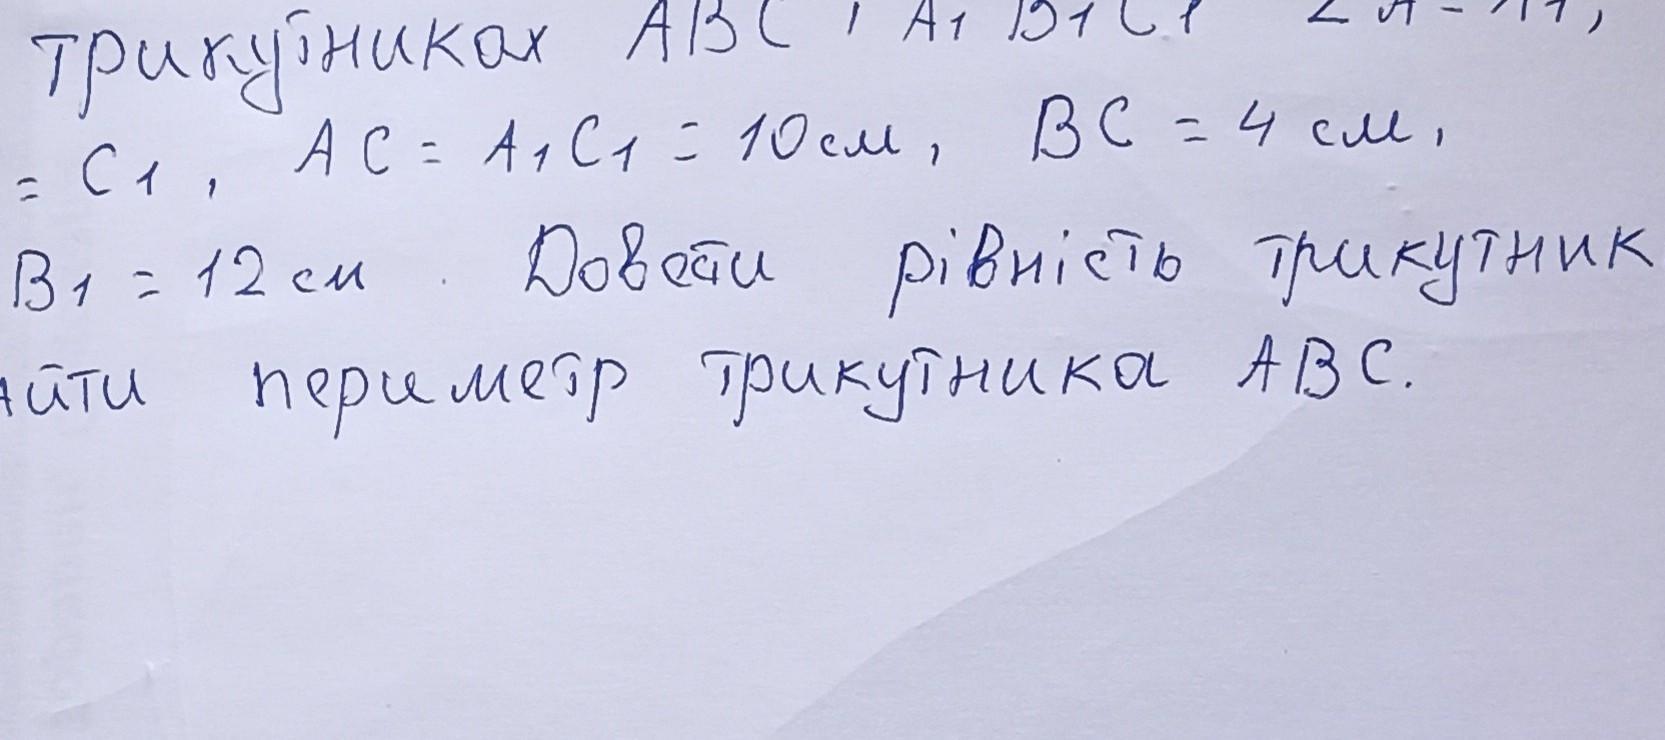 трикутниках ABC і A1 B1 C1 ∠A = A1,
= C1, AC = A1C1 = 10 см, BC = 4 см,
B1 = 12 см. Довести рівність трикутник
айти периметр трикутника ABC.